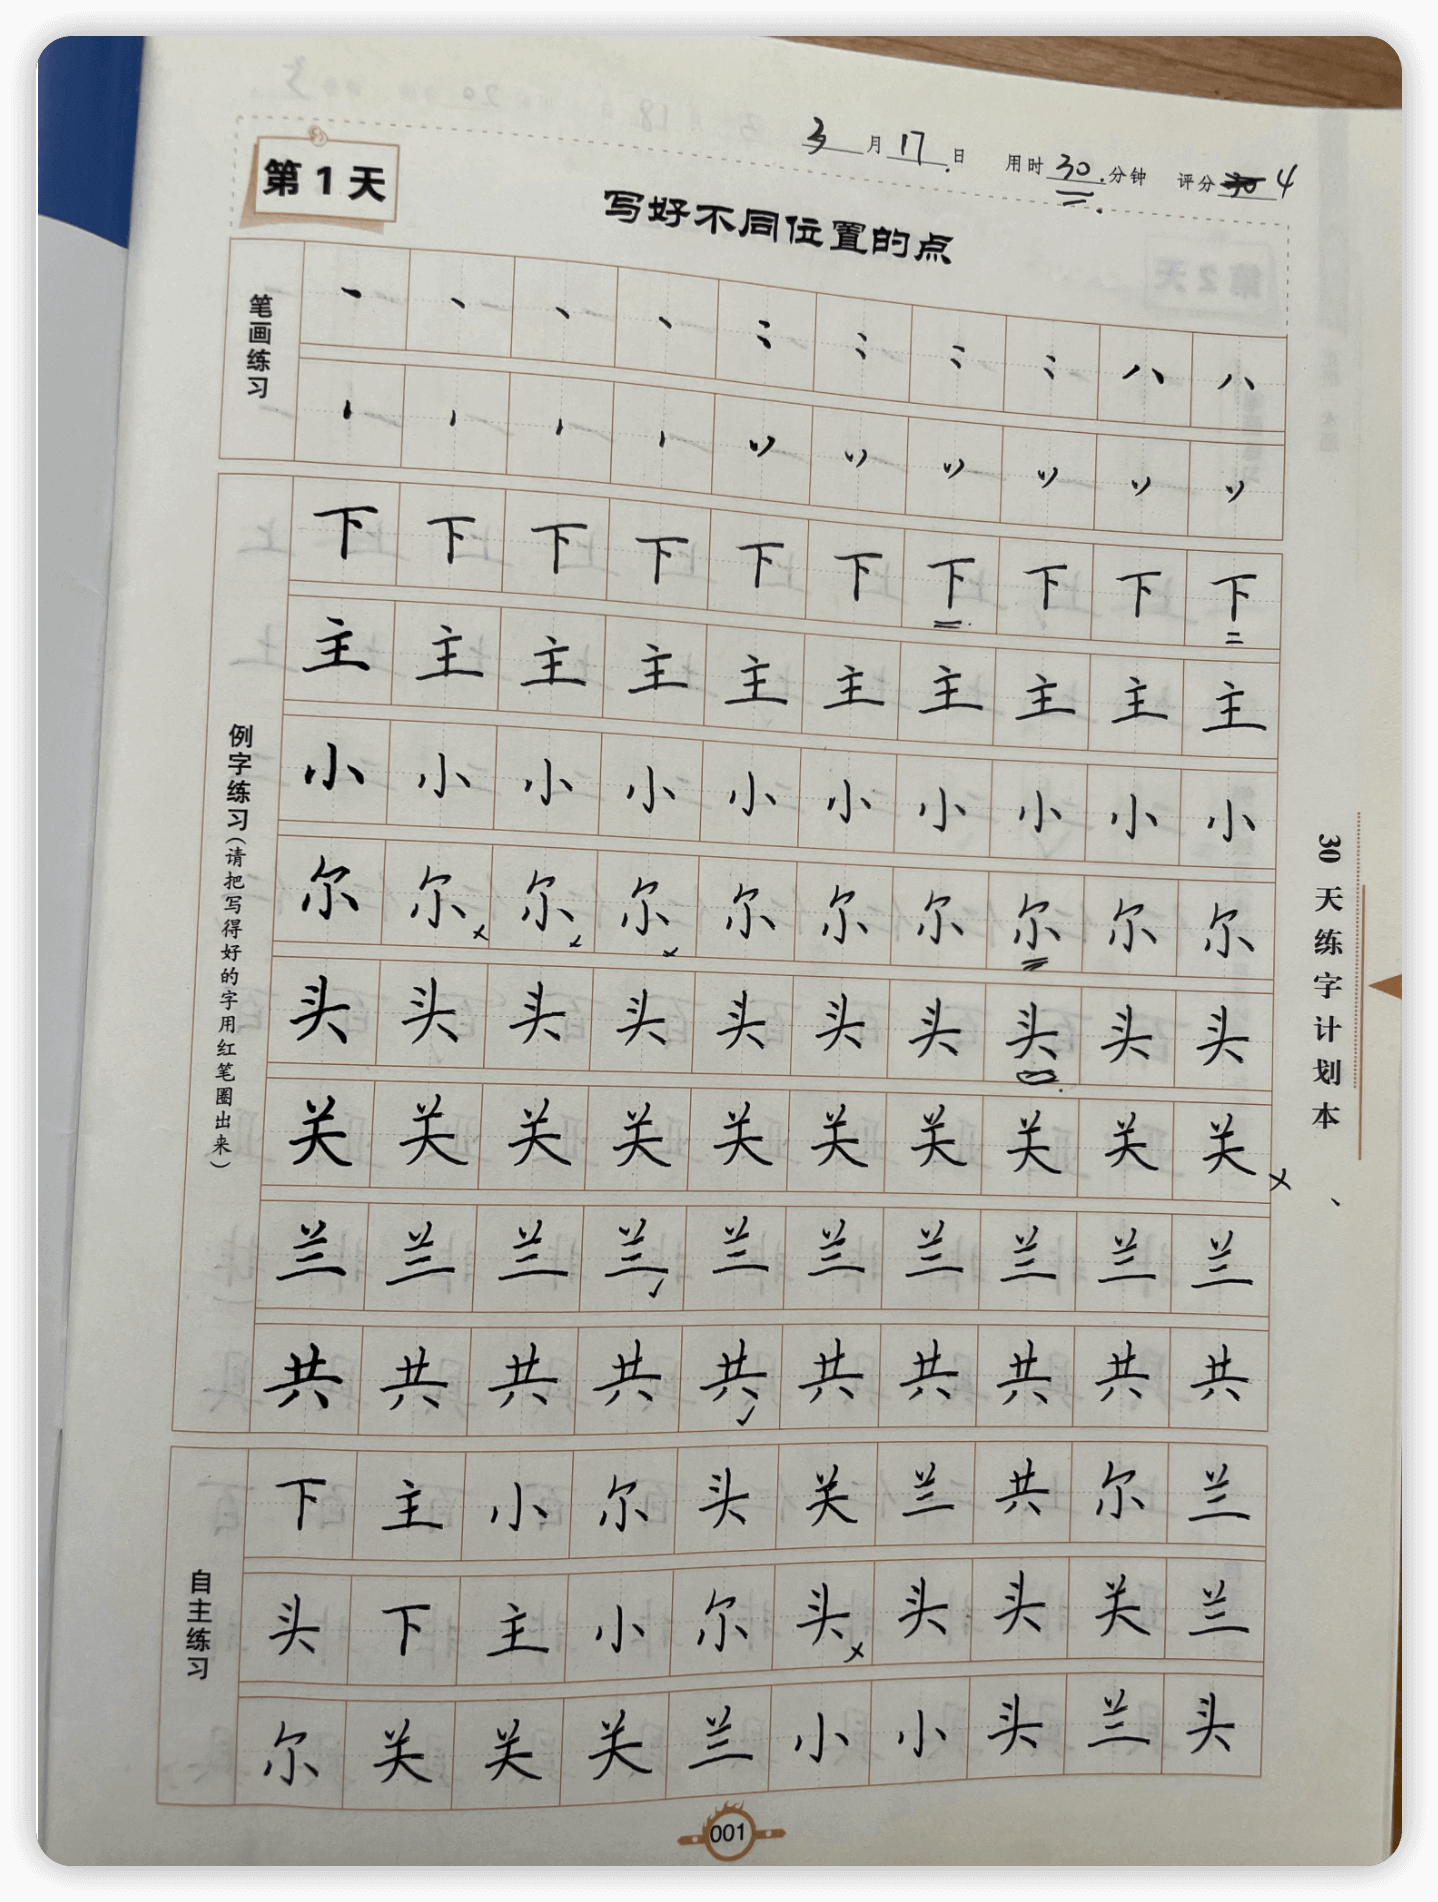 3月17日 用时30分钟 评分4
第1天
写好不同位置的点
笔画练习
例字练习(请把写得好的字用红笔圈出来)
下下下下下下下下下下
主主主主主主主主主主
小小小小小小小小小小
尔尔尔尔尔尔尔尔尔尔
头头头头头头头头头头
关关关关关关关关关关
兰兰兰兰兰兰兰兰兰兰
共共共共共共共共共共
自主练习
下主小尔头关兰共尔兰
头下主小尔头头头关兰
尔关关关兰小小头兰头
30天练字计划本
001